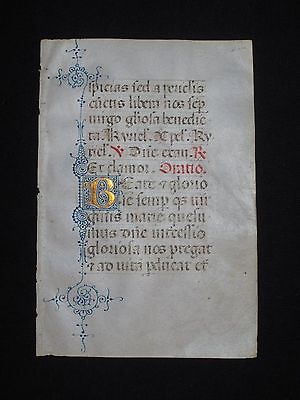 spicias sed a piculis
cuctis libera nos sep
uirgo gliosa benedic
ta. Kyriel. Xpel. Ky
riel. V Dne exau. R
Et clamor. Oratio.
Beate & glorio
se semp qs ui
ginis marie quesu
mus dne intcessio
gloriosa nos pregat
& ad uita pducat et